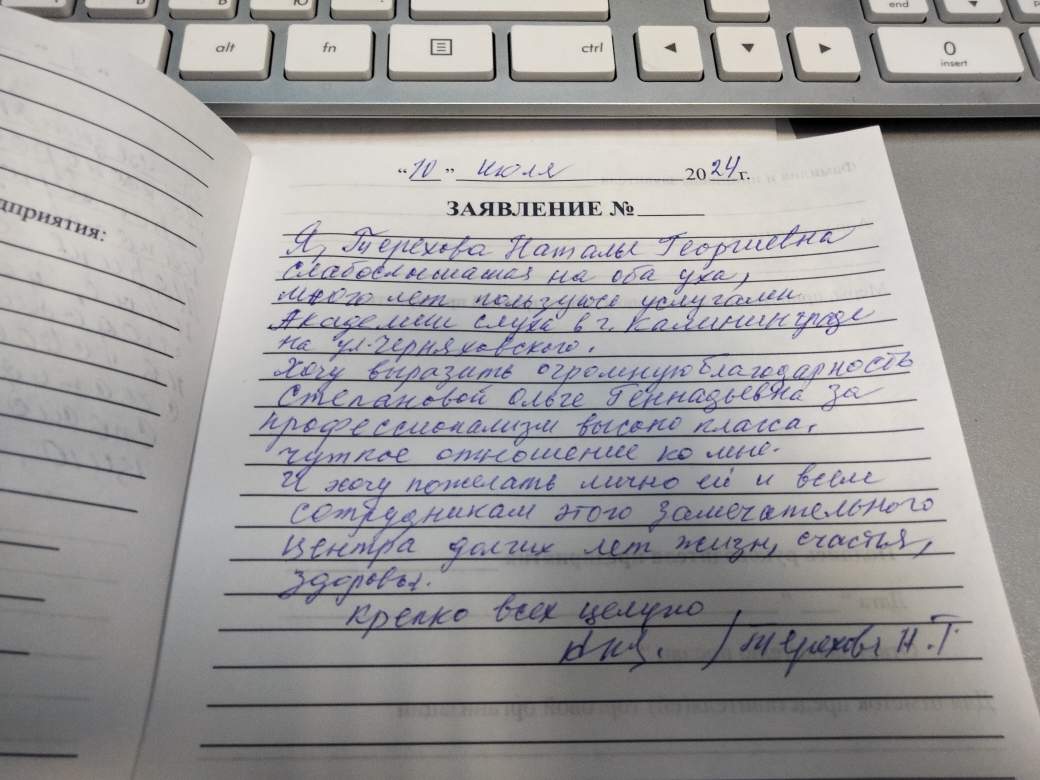 alt
fn
ctrl
end
0
insert
дприятия:
"10" июля 2024г.
ЗАЯВЛЕНИЕ №
Я, Терехова Наталья Георгиевна
слабослышащая на оба уха,
много лет пользуюсь услугами
Академии слуха в г. Калининграде
на ул. Черняховского.
Хочу выразить огромную благодарность
Степановой Ольге Геннадьевна за
профессионализм высоко класса,
чуткое отношение ко мне.
И хочу пожелать лично ей и всем
сотрудникам этого замечательного
центра долгих лет жизни, счастья,
здоровья.
Крепко всех целую
/ Терехова Н.Г.